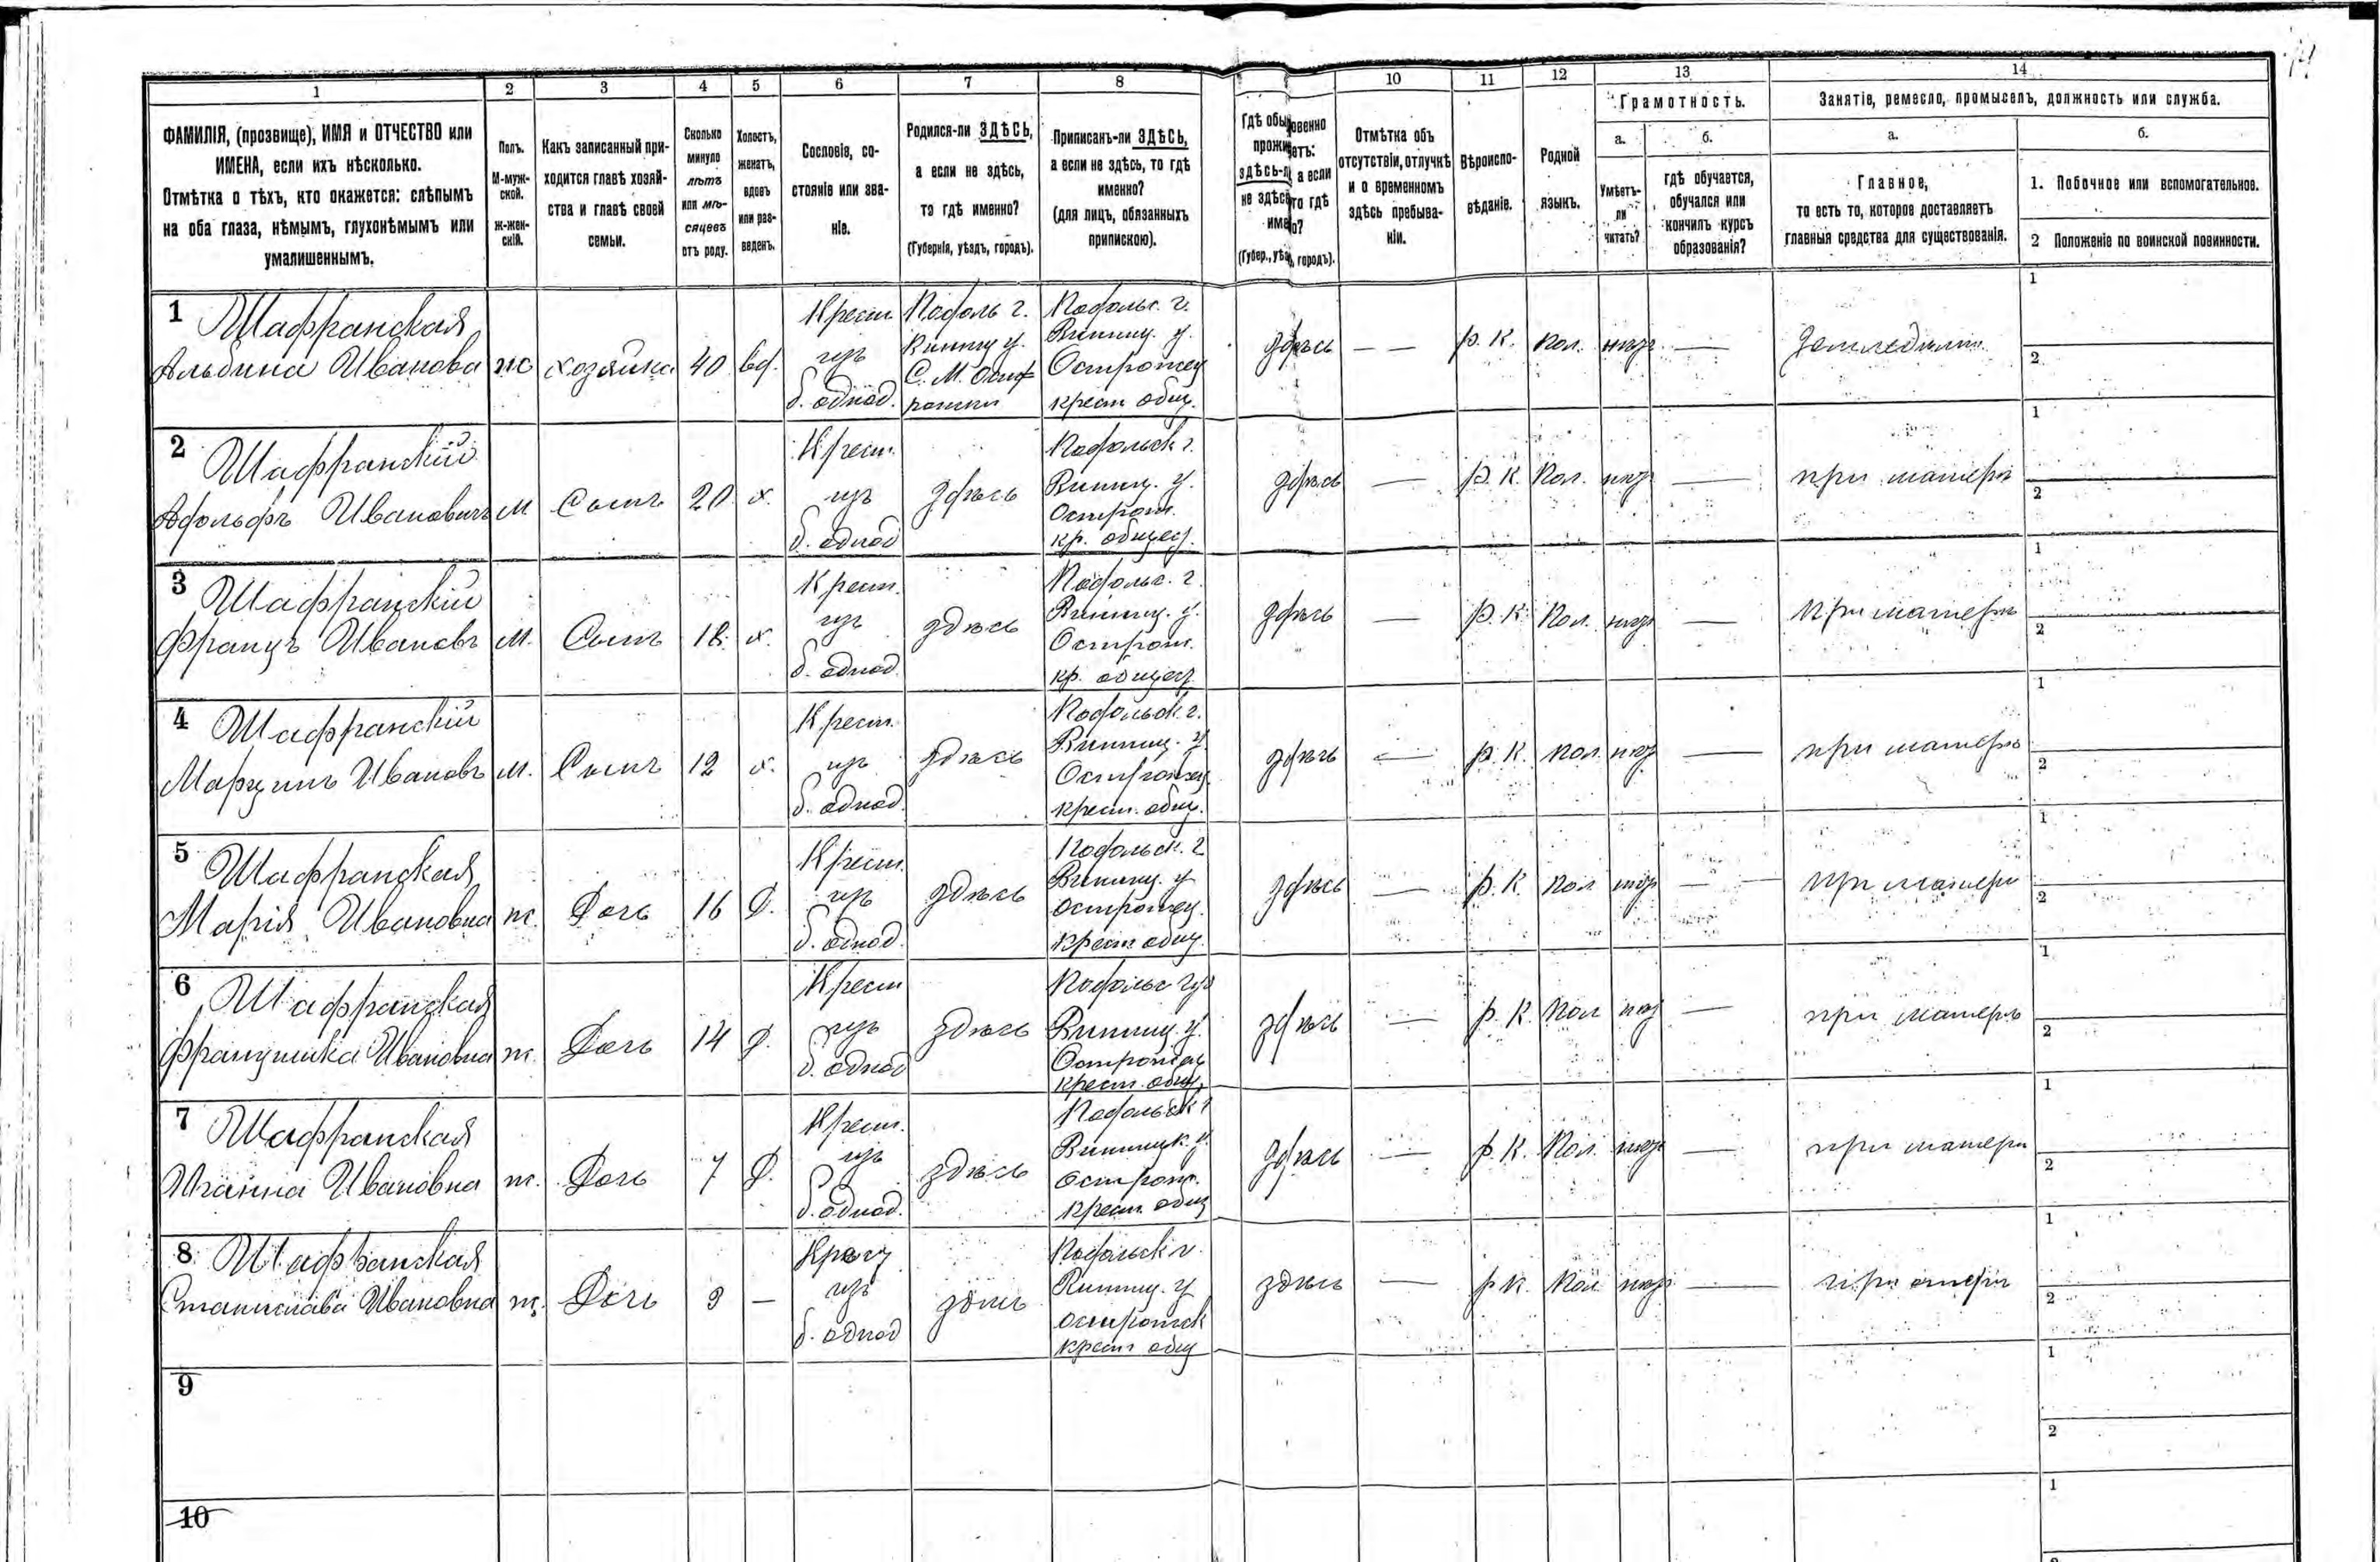 1
2
3
4
5
6
7
8
10
11
12
13
14
ФАМИЛІЯ, (прозвище), ИМЯ и ОТЧЕСТВО или
ИМЕНА, если ихъ нѣсколько.
Отмѣтка о тѣхъ, кто окажется: слѣпымъ
на оба глаза, нѣмымъ, глухонѣмымъ или
умалишеннымъ.
Полъ.
М-муж-
ской.
ж-жен-
скій.
Какъ записанный при-
ходится главѣ хозяй-
ства и главѣ своей
семьи.
Сколько
минуло
лѣтъ
или мѣ-
сяцевъ
отъ роду.
Холостъ,
женатъ,
вдовъ
или раз-
веденъ.
Сословіе, со-
стояніе или зва-
ніе.
Родился-ли ЗДѢСЬ,
а если не здѣсь,
то гдѣ именно?
(Губернія, уѣздъ, городъ).
Приписанъ-ли ЗДѢСЬ,
а если не здѣсь, то гдѣ
именно?
(для лицъ, обязанныхъ
припискою).
Гдѣ обыковенно
прожи етъ:
здѣсь-л а если
не здѣс то гдѣ
име о?
(Губер., уѣз, городъ).
Отмѣтка объ
отсутствіи, отлучкѣ
и о временномъ
здѣсь пребыва-
ніи.
Вѣроиспо-
вѣданіе.
Родной
языкъ.
Грамотность.
а.
Умѣетъ-
ли
читать?
б.
гдѣ обучается,
обучался или
кончилъ курсъ
образованія?
Занятіе, ремесло, промыселъ, должность или служба.
а.
Главное,
то есть то, которое доставляетъ
главныя средства для существованія.
б.
1. Побочное или вспомогательное.
2 Положеніе по воинской повинности.
1 Шафранская
Альбина Иванова
ж
хозяйка
40
вд.
Крест
изъ
б. однод.
Подоль г.
Винниц у.
С. М. Остр
Подольс. г.
Винниц. у.
Острожец
крест общ.
здѣсь
— —
р. К.
пол.
—
1
2
2 Шафранский
Адольфъ Ивановичъ
М
Сынъ
20.
х.
Крест.
изъ
б. однод
здѣсь
Подольск г.
Винниц. у.
Острож.
кр. общест.
здѣсь
—
р. К.
Пол.
—
при матери
1
2
3 Шафранский
Францъ Ивановъ
М.
Сынъ
18.
х.
Крест.
изъ
б. однод.
здѣсь
Подольс. г.
Винниц. у.
Острож.
кр. общест
здѣсь
—
р. К.
Пол.
—
при матери
1
2
4 Шафранский
Марцинъ Ивановъ
М.
Сынъ
12
х.
Крест.
изъ
б. однод.
здѣсь
Подольск. г.
Винниц. у.
Острожец
крест. общ.
здѣсь
—
р. К.
пол.
—
при матери
1
2
5 Шафранская
Марія Ивановна
ж.
Дочь
16
Д.
Крест.
изъ
б. однод.
здѣсь
Подольск. г
Винниц. у
Острожец.
крест общ.
здѣсь
—
р. К.
Пол
—
при матери
1
2
6 Шафранская
Францишка Ивановна
ж.
Дочь
14
Д.
Крест
изъ
б. однод
здѣсь
Подольс губ
Винниц. у.
крест. общ,
здѣсь
—
р. К.
Пол
—
при матери
1
2
7 Шафранская
Ивановна
ж.
Дочь
7
Д.
Крест.
изъ
б. однод.
здѣсь
Подольск г
Винницк. у.
Острож.
крест общ
здѣсь
—
р. К.
Пол.
—
при матери
1
2
8 Шафранская
Станислава Ивановна
ж.
Дочь
—
изъ
б. однод
здѣсь
Подольск г.
Винниц. у
крест общ
здѣсь
—
р К.
Пол.
—
1
2
9
1
2
10
1